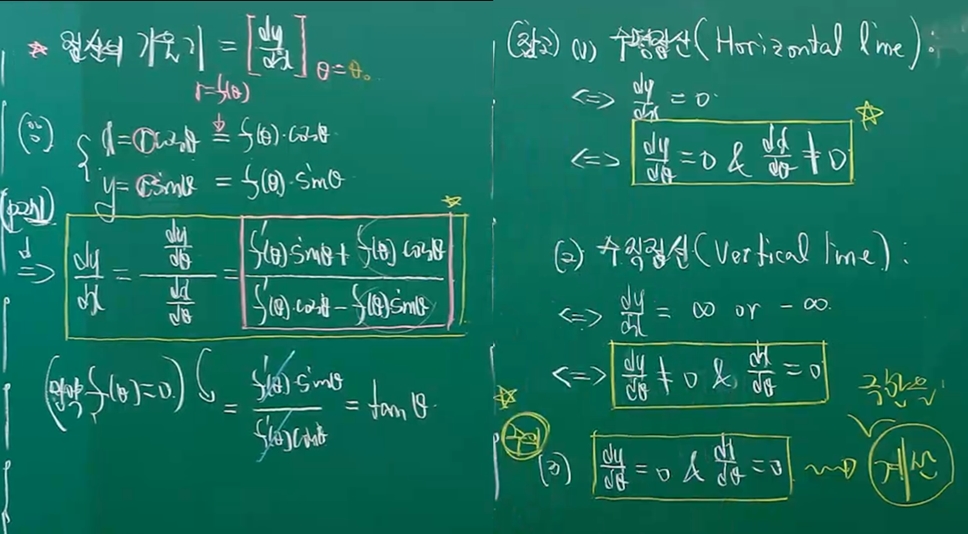 ☆ 접선의 기울기 = [dy/dx] θ=θ₀
r=f(θ)
x = r cosθ = f(θ)·cosθ
y = r sinθ = f(θ)·sinθ
⇒ dy/dx = (dy/dθ)/(dx/dθ) = (f'(θ)·sinθ + f(θ)·cosθ)/(f'(θ)·cosθ - f(θ)sinθ) ☆
(만약 f(θ)=0.) = (f'(θ)·sinθ)/(f'(θ)cosθ) = tanθ
(참고) (1) 수평접선 (Horizontal line):
⇔ dy/dx = 0
⇔ dy/dθ = 0 & dx/dθ ≠ 0 ☆
(2) 수직접선 (Vertical line):
⇔ dy/dx = ∞ or -∞.
⇔ dy/dθ ≠ 0 & dx/dθ = 0
극한을
☆ 주의 (3) dy/dθ = 0 & dx/dθ = 0 ⇝ 계산